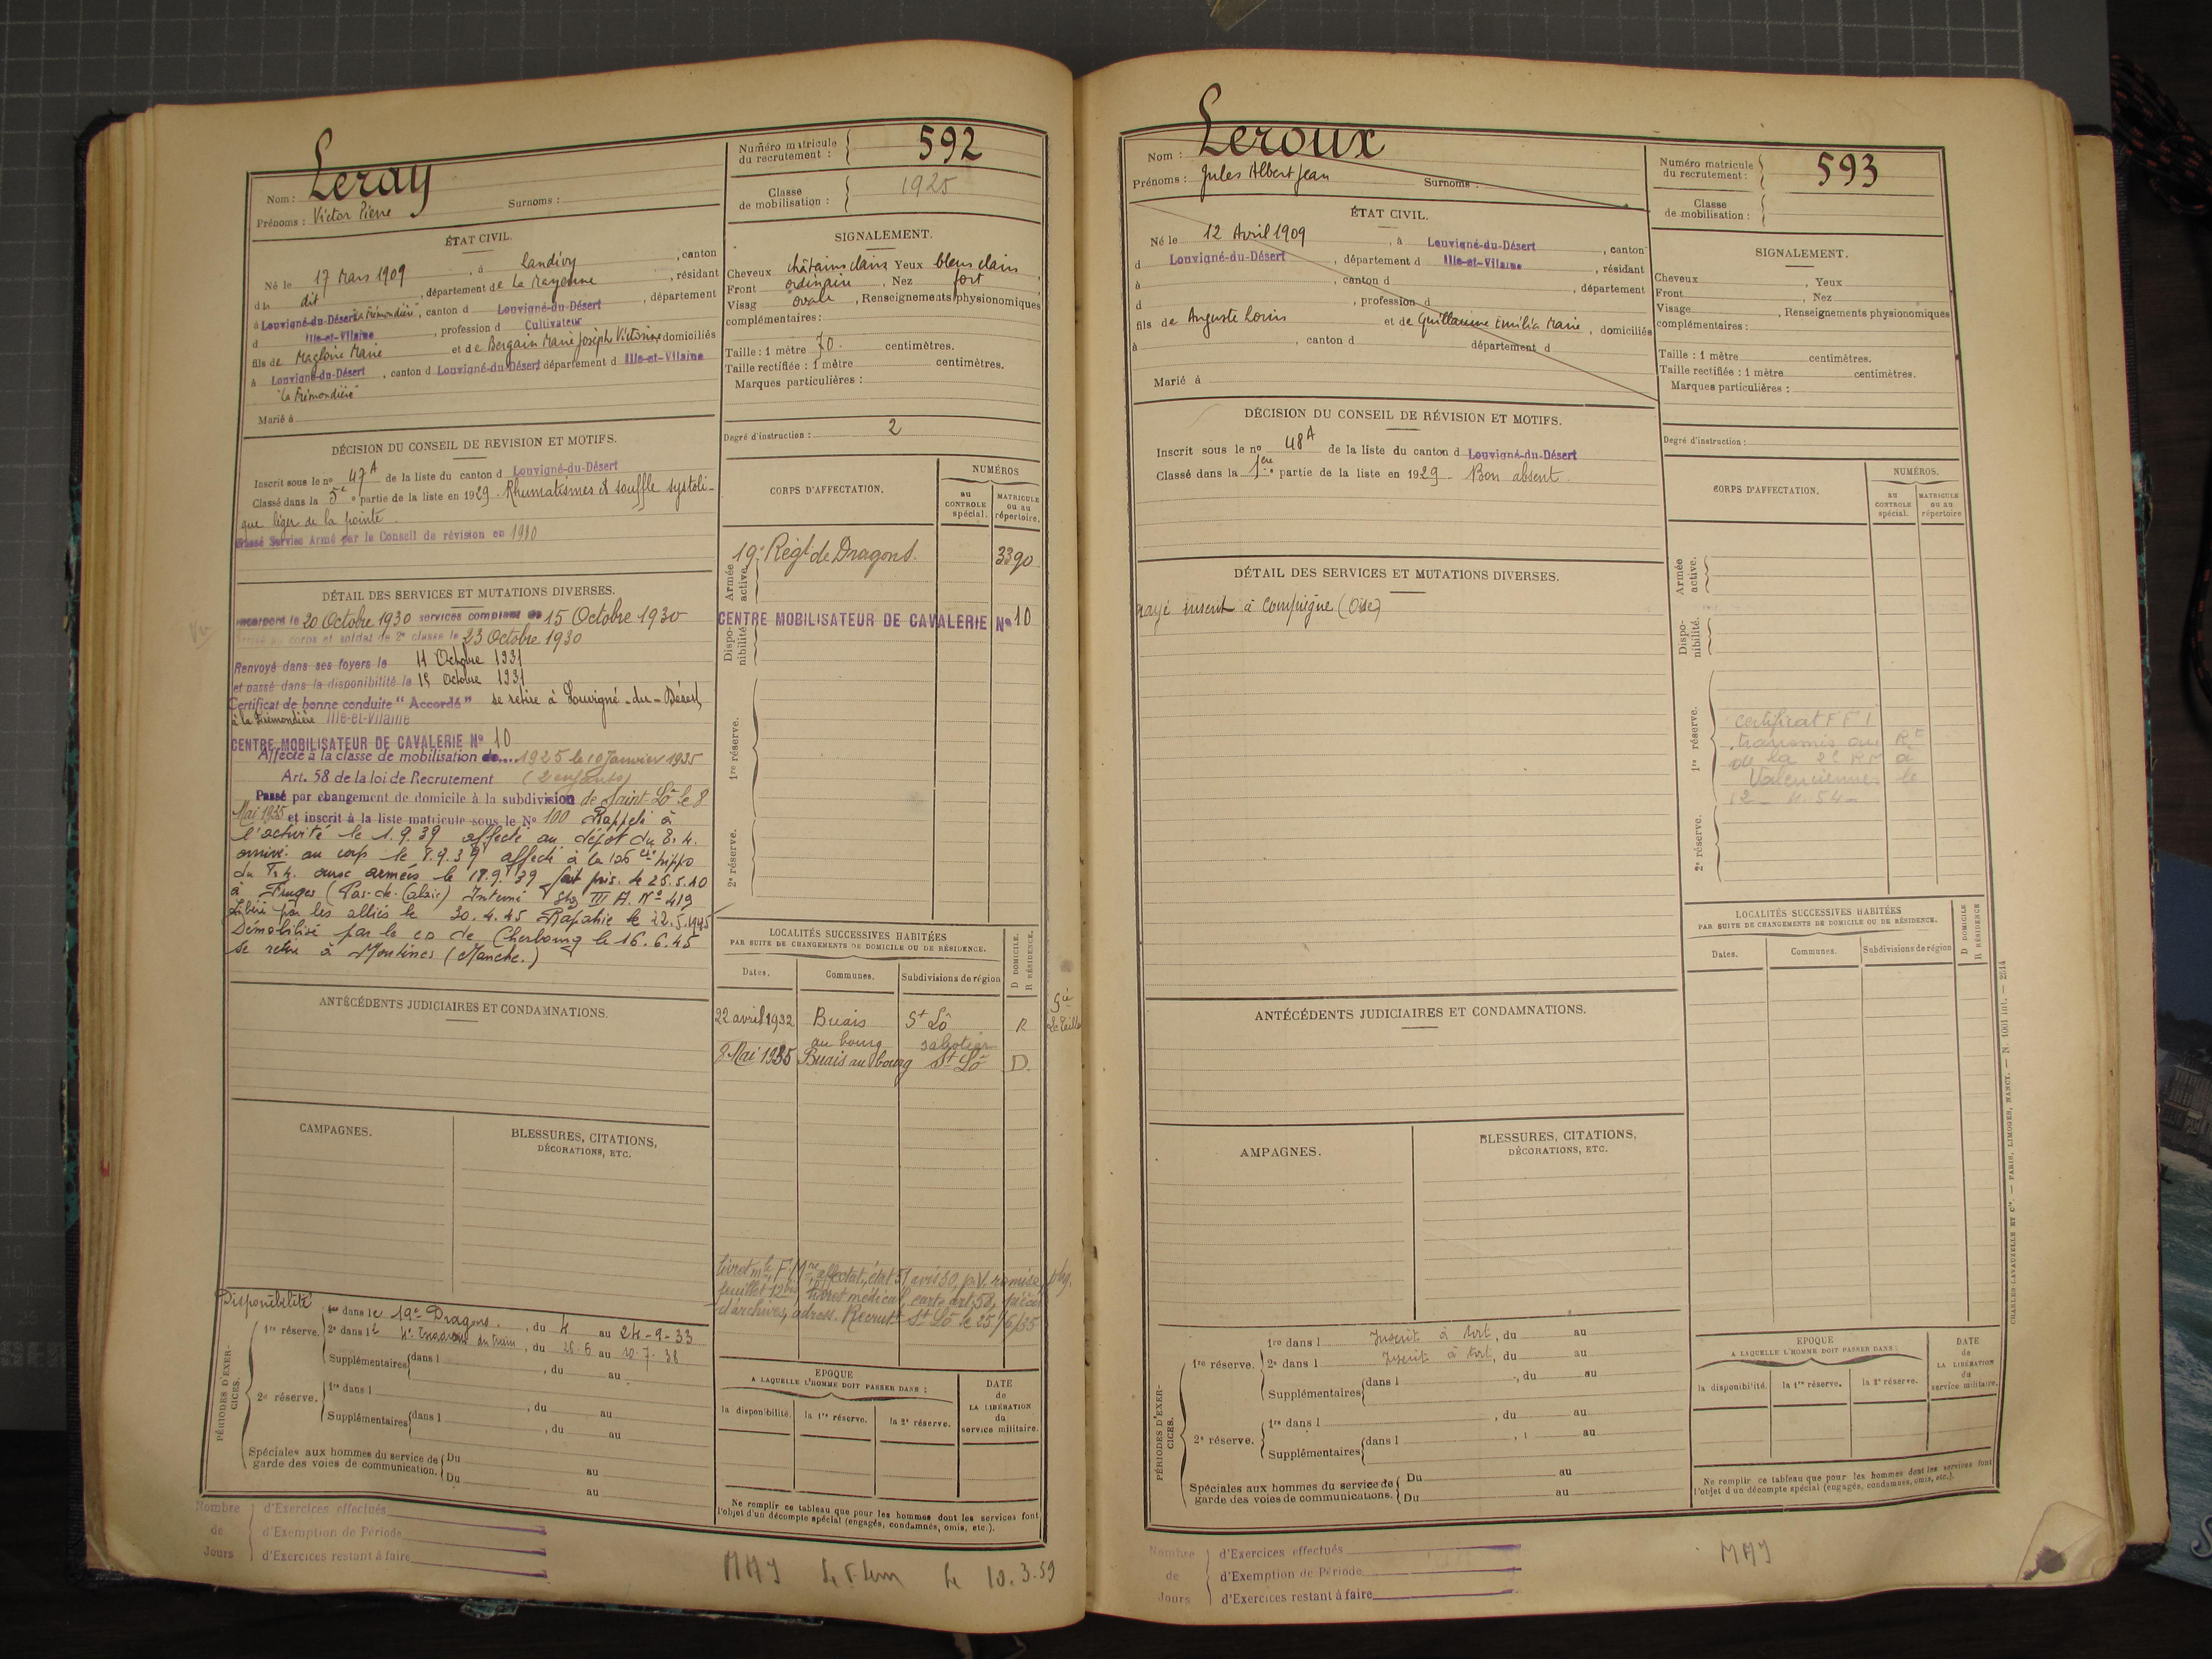 Nom : Leray
Prénoms : Victor Pierre Surnoms :
ÉTAT CIVIL.
Né le 17 Mars 1909, à Landivy, canton
d dit, département de La Mayenne, résidant
à Louvigné-du-Désert, canton d Louvigné-du-Désert, département
d Ille-et-Vilaine, profession d Cultivateur
fils de Magloire Marie et de Bergain Marie Joseph Victorine domiciliés
à Louvigné-du-Désert, canton d Louvigné-du-Désert département d Ille-et-Vilaine
Marié à
DÉCISION DU CONSEIL DE REVISION ET MOTIFS.
Inscrit sous le no 47A de la liste du canton d Louvigné-du-Désert
Classé dans la 5e partie de la liste en 1929. Rhumatismes et souffle systoli-
que léger de la pointe.
Classé Service Armé par le Conseil de révision en 1930
DÉTAIL DES SERVICES ET MUTATIONS DIVERSES.
Incorporé le 20 Octobre 1930 services comptant du 15 Octobre 1930
Arrivé au corps et soldat de 2e classe le 23 Octobre 1930
Renvoyé dans ses foyers le 11 Octobre 1931
et passé dans la disponibilité le 15 Octobre 1931
Certificat de bonne conduite "Accordé" se retire à Louvigné-du-Désert
Ille-et-Vilaine
CENTRE MOBILISATEUR DE CAVALERIE No 10
Affecté à la classe de mobilisation de 1925 le 10 Janvier 1935
Art. 58 de la loi de Recrutement (2 enfants)
Passé par changement de domicile à la subdivision de Saint-Lô le 8
Mai 1935 et inscrit à la liste matricule sous le No 100 Rappelé à
l'activité le 1.9.39 affecté au dépôt du
arrivé au corps le 8.9.39 affecté à la hippo
du aux armées le 18.9.39 fait pris. le 25.5.40
à Fruges (Pas-de-Calais) Interné Stg III A. No 419
Libéré par les alliés le 30.4.45 Rapatrié le 22.5.1945
Démobilisé par le CD de Cherbourg le 16.6.45
se retire à Moulines (Manche.)
ANTÉCÉDENTS JUDICIAIRES ET CONDAMNATIONS.
CAMPAGNES.
BLESSURES, CITATIONS,
DÉCORATIONS, ETC.
Disponibilité
PÉRIODES D'EXERCICES.
1re réserve. dans le 19e Dragons, du 4 au 24-9-33
2e dans l du Train, du 28.6 au 10.7.38
Supplémentaires dans l, du au
2e réserve. 1re dans l, du au
Supplémentaires dans l, du au
Spéciales aux hommes du service de Du au
garde des voies de communication. Du au
Nombre de Jours
d'Exercices effectués
d'Exemption de Période
d'Exercices restant à faire
Numéro matricule
du recrutement : 592
Classe
de mobilisation : 1925
SIGNALEMENT.
Cheveux châtains clairs Yeux bleus clairs
Front ordinaire, Nez fort
Visag ovale, Renseignements physionomiques
complémentaires :
Taille : 1 mètre 70. centimètres.
Taille rectifiée : 1 mètre centimètres.
Marques particulières :
Degré d'instruction : 2
CORPS D'AFFECTATION.
NUMÉROS
au CONTROLE spécial.
MATRICULE ou au répertoire.
Armée active.
19e Régt de Dragons. 3390
CENTRE MOBILISATEUR DE CAVALERIE No 10
Disponibilité.
1re réserve.
2e réserve.
LOCALITÉS SUCCESSIVES HABITÉES
PAR SUITE DE CHANGEMENTS DE DOMICILE OU DE RÉSIDENCE.
D DOMICILE.
R RÉSIDENCE.
Dates. Communes. Subdivisions de région
22 avril 1932 Buais St Lô R
au bourg sabotier
8 Mai 1935 Buais au bourg St Lô D.
d'archives, adress. Recrutt St Lô le 25/6/35
EPOQUE
A LAQUELLE L'HOMME DOIT PASSER DANS :
la disponibilité. la 1re réserve. la 2e réserve.
DATE
de
LA LIBÉRATION
du
service militaire.
Ne remplir ce tableau que pour les hommes dont les services font
l'objet d'un décompte spécial (engagés, condamnés, omis, etc.).
MAJ Le 10.3.59
Nom : Leroux
Prénoms : Jules Albert Jean Surnoms :
ÉTAT CIVIL.
Né le 12 Avril 1909, à Louvigné-du-Désert, canton
d Louvigné-du-Désert, département d Ille-et-Vilaine, résidant
à, canton d, département
d, profession d
fils de Auguste Louis et de Guillaume Emilia Marie, domiciliés
à, canton d département d
Marié à
DÉCISION DU CONSEIL DE RÉVISION ET MOTIFS.
Inscrit sous le no 48A de la liste du canton d Louvigné-du-Désert
Classé dans la 1ère partie de la liste en 1929 - Bon absent.
DÉTAIL DES SERVICES ET MUTATIONS DIVERSES.
rayé inscrit à Compiègne (Oise)
ANTÉCÉDENTS JUDICIAIRES ET CONDAMNATIONS.
AMPAGNES.
BLESSURES, CITATIONS,
DÉCORATIONS, ETC.
PÉRIODES D'EXERCICES.
1re réserve. 1re dans l Inscrit à tort, du au
2e dans l Inscrit à tort, du au
Supplémentaires dans l, du au
2e réserve. 1re dans l, du au
Supplémentaires dans l, au
Spéciales aux hommes du service de Du au
garde des voies de communications. Du au
Nombre de Jours
d'Exercices effectués
d'Exemption de Période
d'Exercices restant à faire
Numéro matricule
du recrutement : 593
Classe
de mobilisation :
SIGNALEMENT.
Cheveux, Yeux
Front, Nez
Visage, Renseignements physionomiques
complémentaires :
Taille : 1 mètre centimètres.
Taille rectifiée : 1 mètre centimètres.
Marques particulières :
Degré d'instruction :
CORPS D'AFFECTATION.
NUMÉROS.
AU CONTROLE spécial.
MATRICULE ou au répertoire
Armée active.
Disponibilité.
1re réserve.
certificat FFI
transmis au Rt
de la 2e RM à
Valenciennes le
2e réserve.
LOCALITÉS SUCCESSIVES HABITÉES
PAR SUITE DE CHANGEMENTS DE DOMICILE OU DE RÉSIDENCE.
D DOMICILE
R RÉSIDENCE.
Dates. Communes. Subdivisions de région
EPOQUE
A LAQUELLE L'HOMME DOIT PASSER DANS :
la disponibilité. la 1re réserve. la 2e réserve.
DATE
de
LA LIBÉRATION
du
service militaire.
Ne remplir ce tableau que pour les hommes dont les services font
l'objet d'un décompte spécial (engagés, condamnés, omis, etc.).
MAJ
CHARLES-LAVAUZELLE ET Cie. — PARIS, LIMOGES, NANCY.